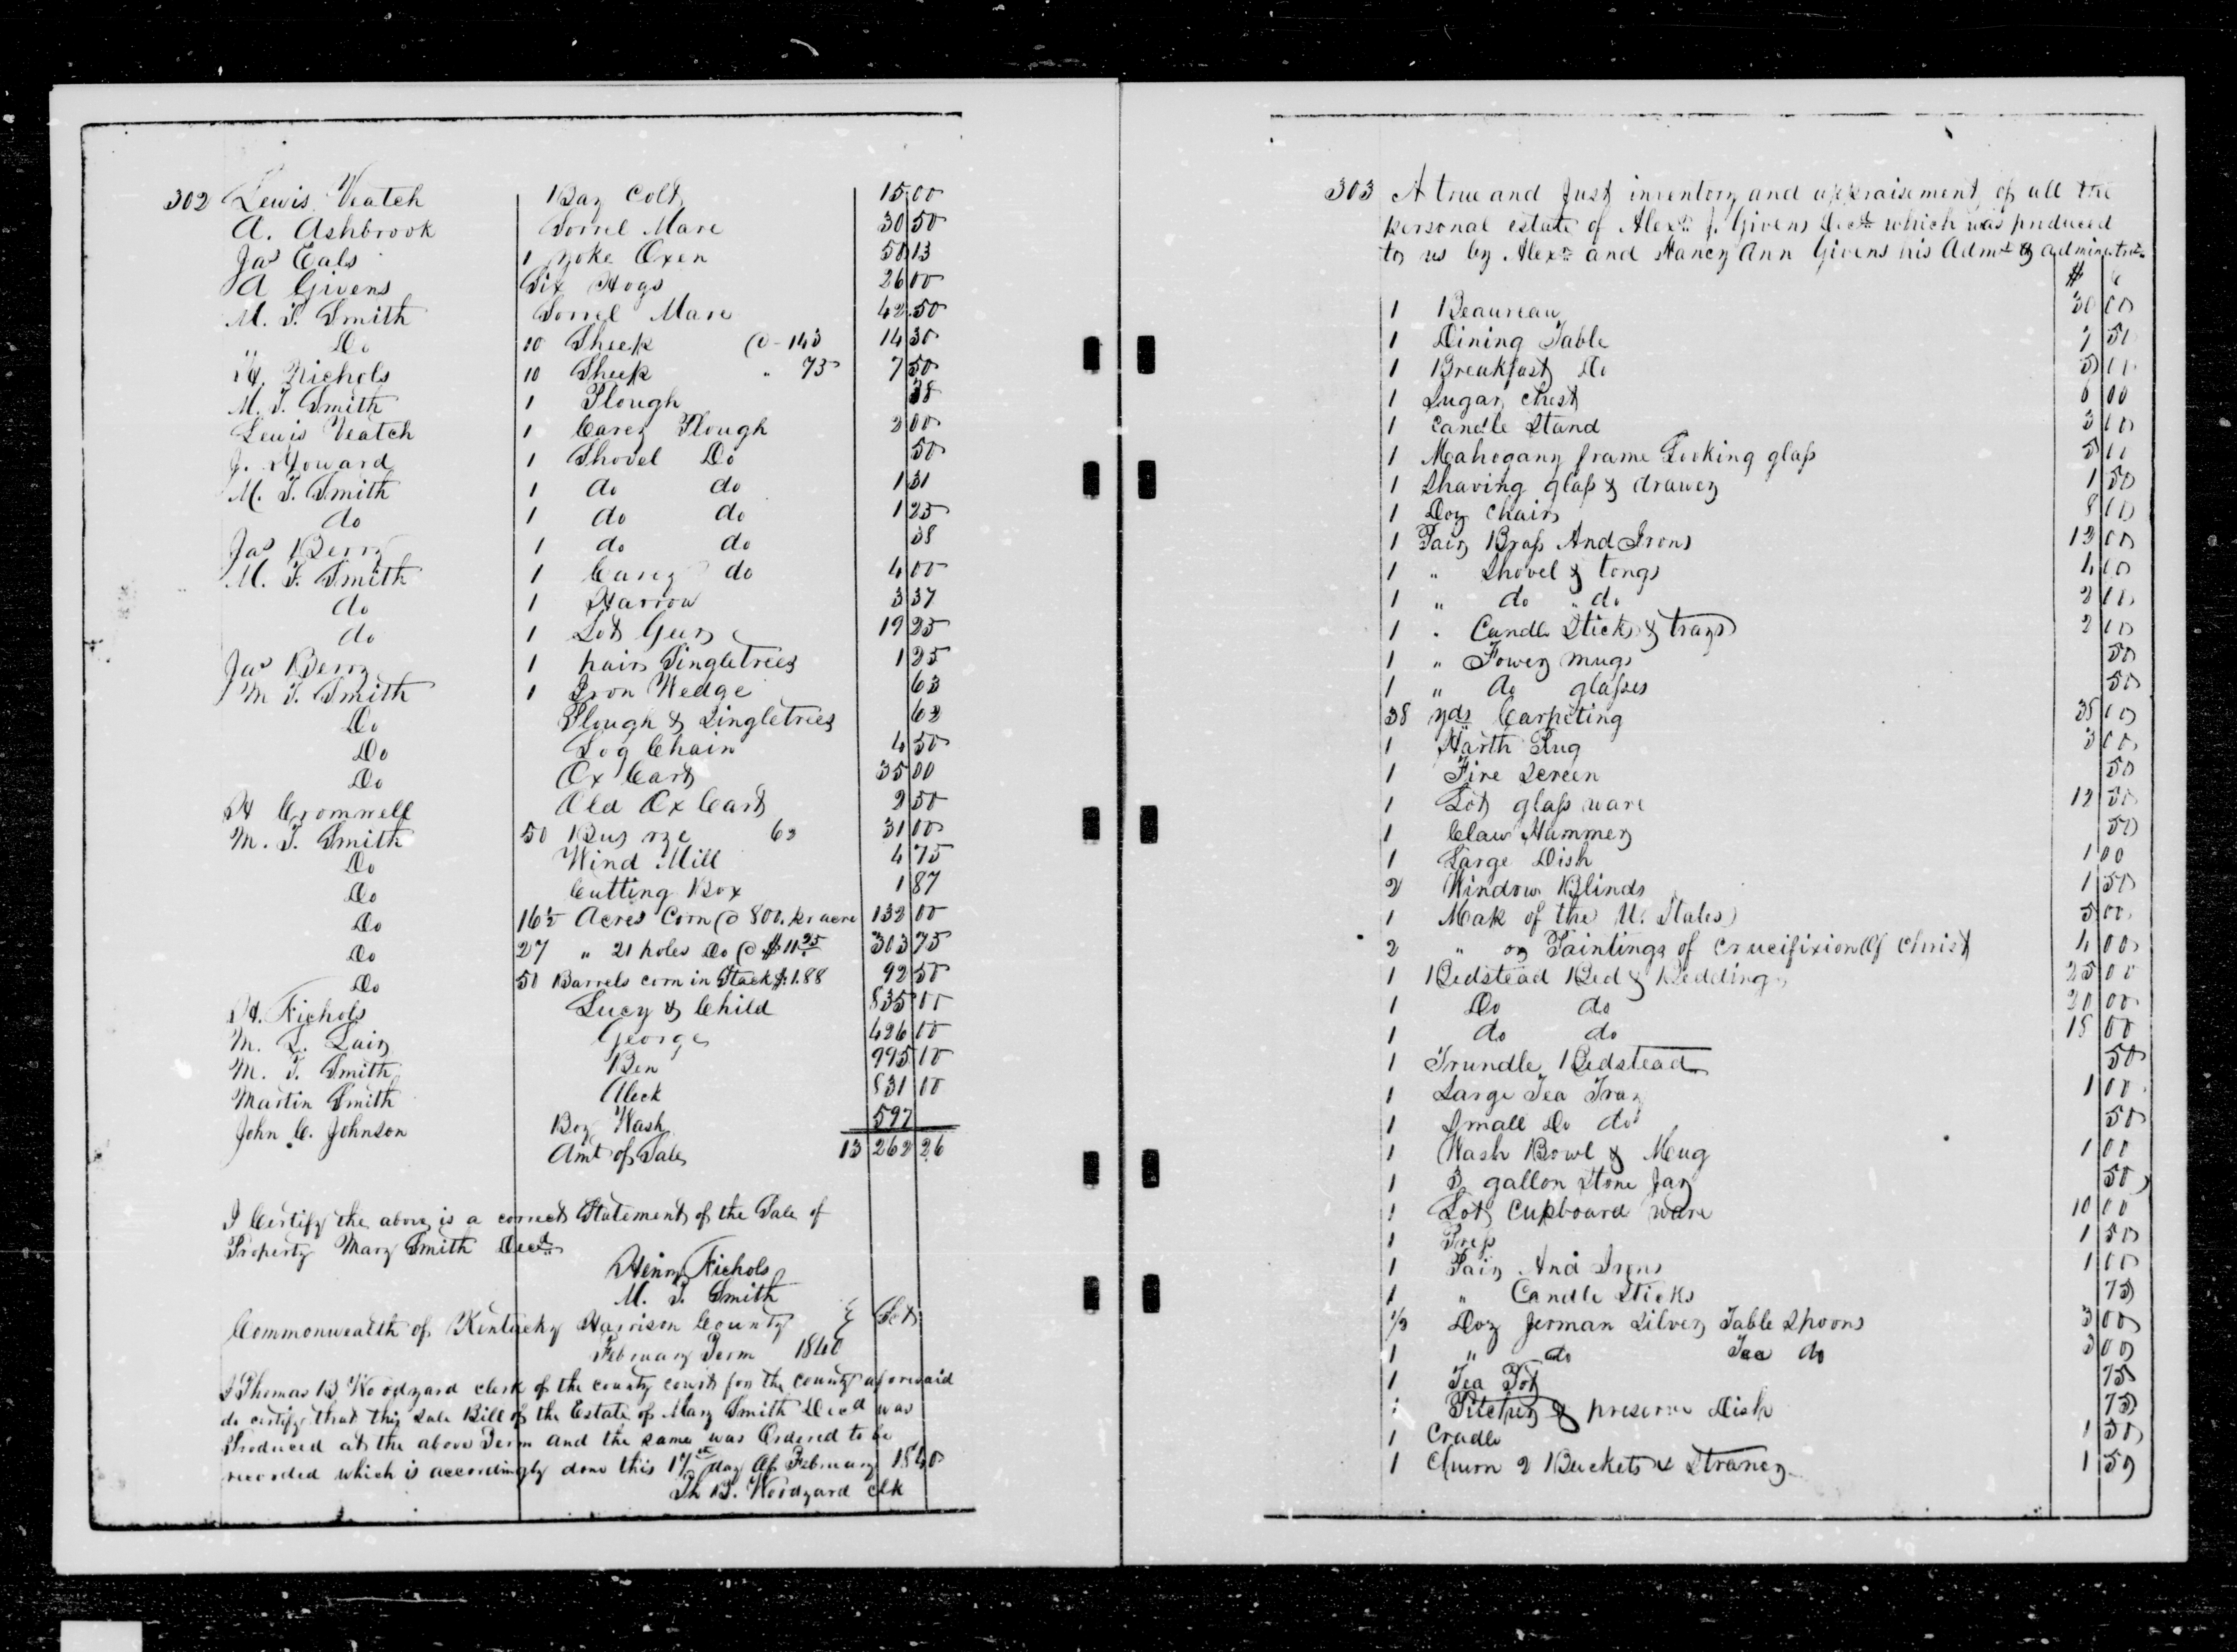 302 Lewis Veatch Bay Colt 15 00
A. Ashbrook Sorrel Mare 30 50
Jas Eals 1 yoke Oxen 50 13
A Givens Six Hogs 26 00
M. T. Smith Sorrel Mare 42.50
" Do 10 Sheep @ - 143 14 30
H. Nichols 10 Sheep " 75 7 50
M. T. Smith 1 Plough 38
Lewis Veatch 1 Carey Plough 2 00
J. Howard 1 Shovel Do 50
M. T. Smith 1 do do 1 31
do 1 do do 1 25
Jas Berry 1 do do 38
M. T. Smith 1 Carey do 4 00
do 1 Harrow 3 37
do 1 Lot Gears 19 25
Jas Berry 1 pair Singletrees 1 25
M T. Smith 1 Iron Wedge 63
Do Plough & Singletrees 62
Do Log Chain 4 50
Do Ox Cart 35 00
H Cromwell Old Ox Cart 2 50
M. T. Smith 50 Bus rye 62 31 00
Do Wind Mill 4 75
Do Cutting Box 1 87
Do 16½ Acres Corn @ 800. pr acre 132 00
Do 27 " 21 poles Do @ $11.25 303 75
Do 50 Barrels corn in Stack $1.88 92 50
H. Nichols Lucy & Child 835 00
M. L. Lair George 426 00
M. T. Smith Ben 995 00
Martin Smith Aleck 831 00
John C. Johnson Boy Wash 597
Amt of Sale 13 262 26
I Certify the above is a correct Statement of the Sale of
Property Mary Smith Decd
Henry Nichols
M. T. Smith
Commonwealth of Kentucky Harrison County } Sct.
February Term 1840
I Thomas B Woodyard clerk of the county court for the county aforesaid
do certify that this Sale Bill of the Estate of Mary Smith Decd was
Produced at the above Term and the same was Ordered to be
recorded which is accordingly done this 17th day of February 1840
Th B. Woodyard clk
303 A true and Just inventory and appraisement of all the
personal estate of Alexr J. Givens Decd which was produced
to us by Alexr and Nancy Ann Givens his Admr & administrx
$ c
1 Beaureau 30 00
1 Dining Table 7 50
1 Breakfast Do 5 00
1 Sugar Chest 6 00
1 Candle Stand 3 00
1 Mahogany frame Looking glass 5 00
1 Shaving glass & drawer 1 50
1 Doz Chairs 8 00
1 Pair Brass And Irons 12 00
1 " Shovel & tongs 4 00
1 " do " do 2 00
1 " Candle Sticks & trays 2 00
1 " Flower mugs 50
1 " do glasses 50
38 yds Carpeting 38 00
1 Harth Rug 3 00
1 Fire Screen 50
1 Lot glass ware 12 50
1 Claw Hammer 50
1 Large Dish 1 00
2 Window Blinds 1 50
1 Map of the U. States 5 00
2 " or Paintings of Crucifixion Of Christ 4 00
1 Bedstead Bed & Bedding 25 00
1 Do do 20 00
1 do do 15 00
1 Trundle Bedstead 50
1 Large Tea Tray 1 00
1 Small Do do 50
1 Wash Bowl & Mug 1 00
1 3 gallon Stone Jar 50
1 Lot Cupboard ware 10 00
1 Press 1 50
1 Pair And Irons 1 00
1 " Candle Sticks 75
½ Doz german Silver Table Spoons 3 00
1 " do Tea do 3 00
1 Tea Pot 75
1 Pitcher & preserve Dish 75
1 Cradle 1 50
1 Churn 2 Buckets & Straner 1 50